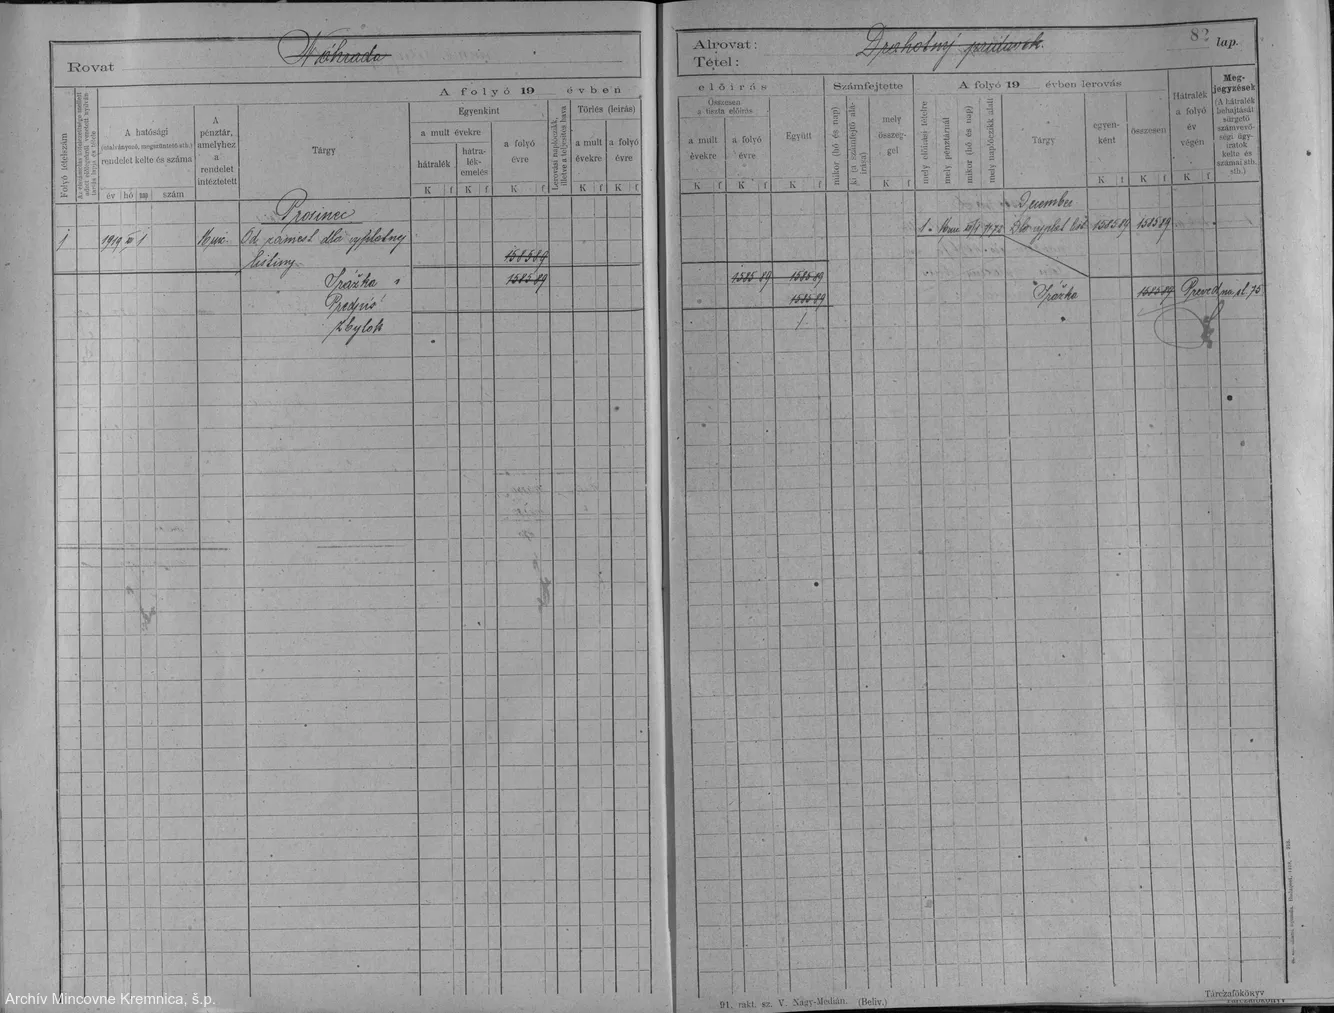 Rovat Náhrada
A folyó 19 évben
Folyó tételszám
A hatósági
rendelet kelte és száma
év hó nap szám
A
pénztár,
amelyhez
a
rendelet
intéztetett
Tárgy
Egyenkint
a mult évekre
hátralék
hátra-
lék-
emelés
a folyó
évre
Törlés (leirás)
a mult
évekre
a folyó
évre
K f K f K f K f K f
Prosinec
1 1919 XI 1 Od zamest. dla výplatny
listiny 1585 89
Srážka 1585 89
Predpis
Zbytok
Alrovat: Drahotný prídavok.
Tétel:
82 lap.
előirás
Összesen
a tiszta előirás
a mult
évekre
a folyó
évre
Együtt
Számfejtette
mikor (hó és nap)
ki (a számfejtő alá-
irása)
mely
összeg-
gel
A folyó 19 évben lerovás
mely előirási tételre
mely pénztárnál
mikor (hó és nap)
mely naplóczikk alatt
Tárgy
egyen-
ként
összesen
Hátralék
a folyó
év
végén
Meg-
jegyzések
(A hátralék
behajtását
sürgető
számvevő-
ségi ügy-
iratok
kelte és
számai stb.)
K f K f K f K f K f K f K f
December
1 Dla výplat. list. 1585 89 1585 89
1585 89 1585 89
1585 89 Srážka 1585 89 Preved. na st. 75
21. rakt. sz. V. Nagy-Medián. (Beliv.)
Tárczafőkönyv
Archív Mincovne Kremnica, š.p.